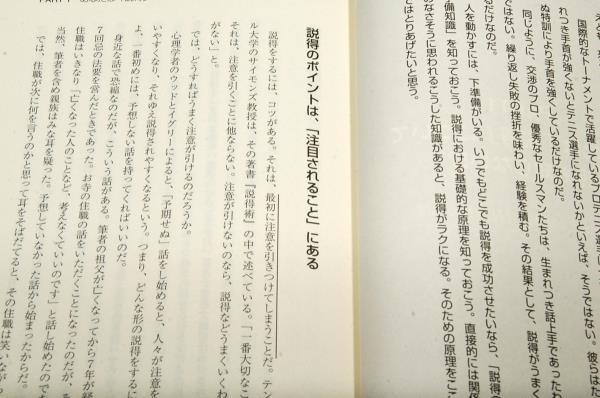 国際的なトーナメントで活躍しているプロテニス選手
れつき手首が強くないとテニス選手になれないかといえば、そうではない。彼らはた
ぬ特訓により手首を強くしているだけなのだ。
同じように、交渉のプロ、優秀なセールスマンたちは、生まれつき話上手であったわ
ではない。繰り返し失敗の挫折を味わい、経験を積む。その結果として、説得がうまく
るだけなのだ。
人を動かすには、下準備がいる。いつでもどこでも説得を成功させたいなら、「説得の
備知識」を知っておこう。説得における基礎的な原理を知っておこう。直接的には関係
のなさそうに思われるこうした知識があると、説得がラクになる。そのための原理をここ
ではとりあげたいと思う。
説得のポイントは、「注目されること」にある
説得をするには、コツがある。それは、最初に注意を引きつけてしまうことだ。テン
ル大学のサイモンズ教授は、その著書『説得術』の中で述べている。「一番大切なこ
それは、注意を引くことに他ならない。注意が引けないのなら、説得などうまくいくわ
がない」と。
では、どうすればうまく注意が引けるのだろうか。
心理学者のウッドとイグリーによると、「予期せぬ」話をし始めると、人々が注意を
いやすくなり、それゆえ説得されやすくなるという。つまり、どんな形の説得をするに
よ、一番初めには、予想しない話を持ってくればいいのだ。
身近な話で恐縮なのだが、こういう話がある。筆者の祖父が亡くなってから7年が経
7回忌の法要を営んだときであった。お寺の住職の話をいただくことになったのだが、そ
住職はいきなり「亡くなった人のことなど、考えなくていいのです」と話し始めたのであ
当然、筆者を含め親族はみな耳を疑った。予想していなかった話から始まったからだ。
では、住職が次に何を言うのかと思って耳をそばだてると、その住職は笑いなが